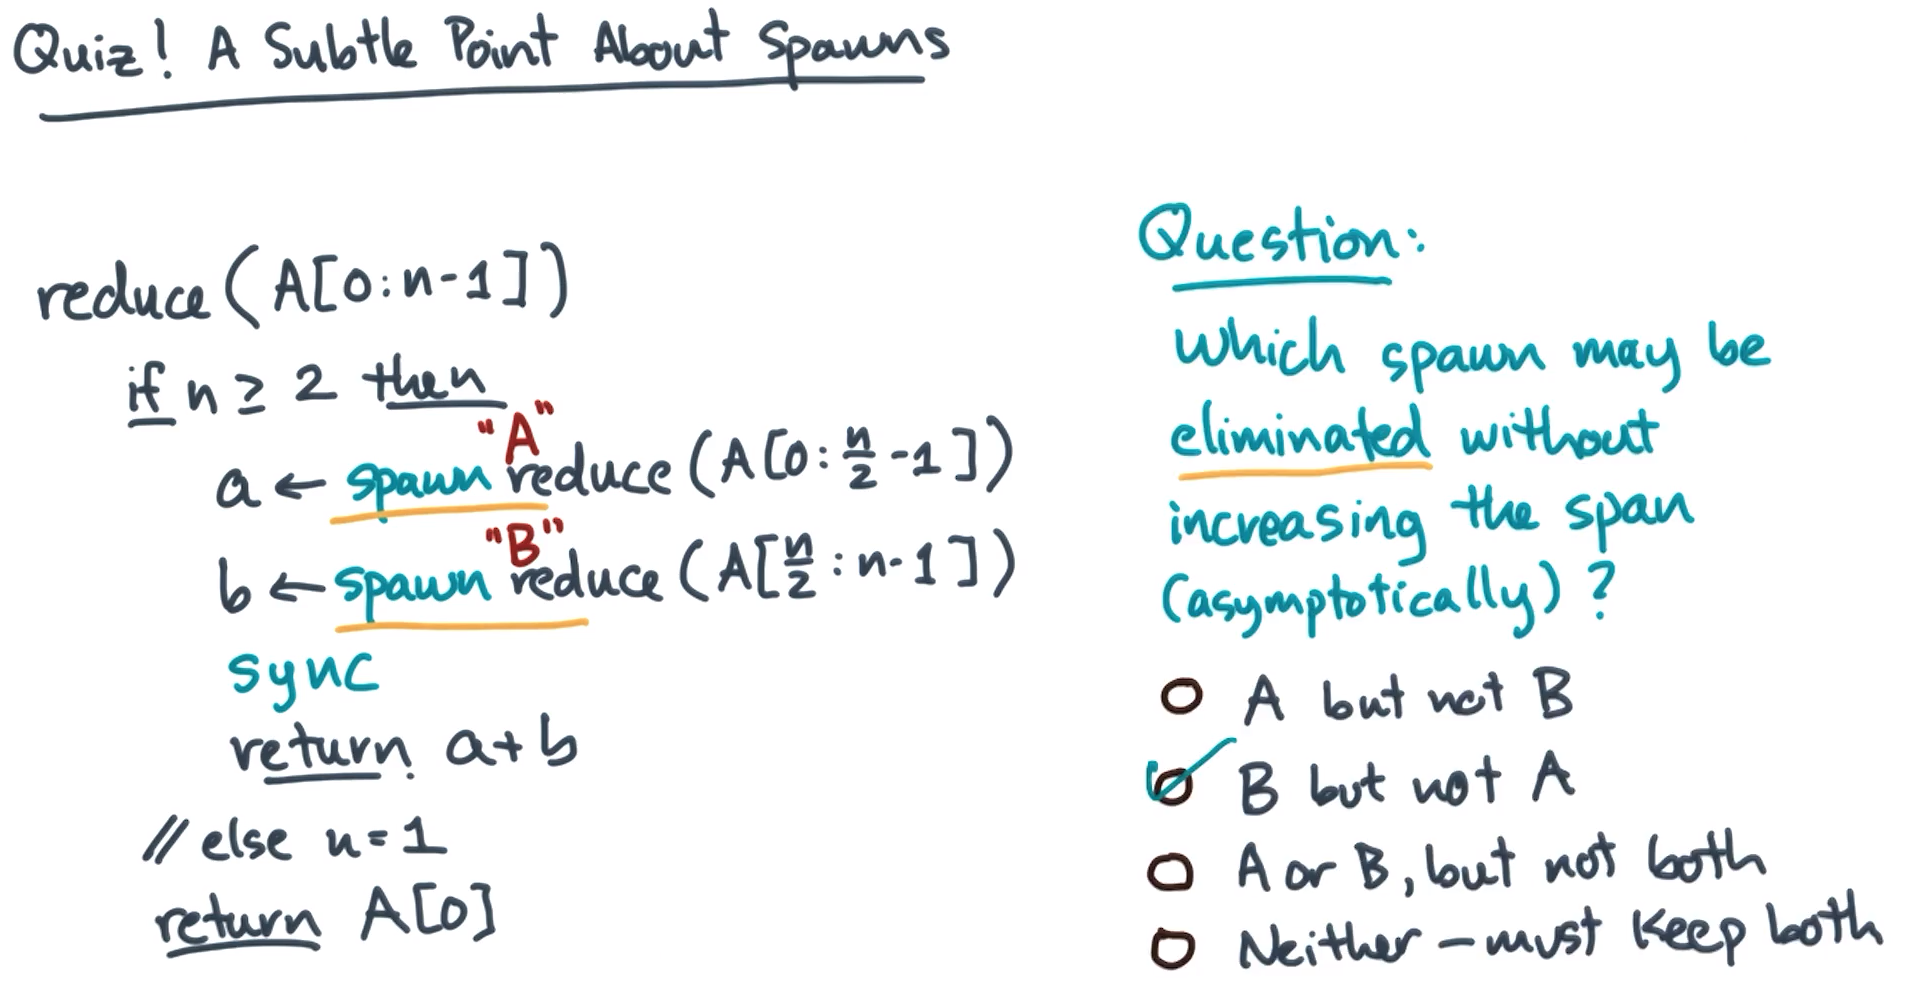 Quiz! A Subtle Point About Spawns
reduce (A[0:n-1])
if n ≥ 2 then
"A"
a ← spawn reduce (A[0: n/2 -1])
"B"
b ← spawn reduce (A[n/2 : n-1])
sync
return a+b
// else n=1
return A[0]
Question:
Which spawn may be
eliminated without
increasing the span
(asymptotically) ?
A but not B
B but not A
A or B, but not both
Neither – must keep both